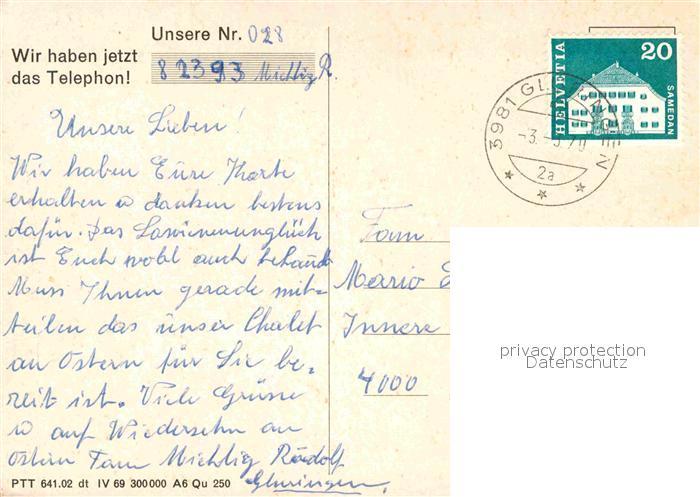 Unsere Nr. 028
Wir haben jetzt
das Telephon!
82393 Michlig R.
Unsere Lieben!
Wir haben Eure Karte
erhalten u danken bestens
dafür. Das Lawienenunglück
ist Euch wohl auch bekannt
Muss Ihnen gerade mit-
teilen das unser Chalet
an Ostern für Sie be-
reit ist. Viele Grüsse
u auf Wiedersehn an
Ostern Fam Michlig Rudolf
PTT 641.02 dt IV 69 300 000 A6 Qu 250
HELVETIA
20
SAMEDAN
3981
2a
Fam
Mario
Innere
4000
privacy protection
Datenschutz